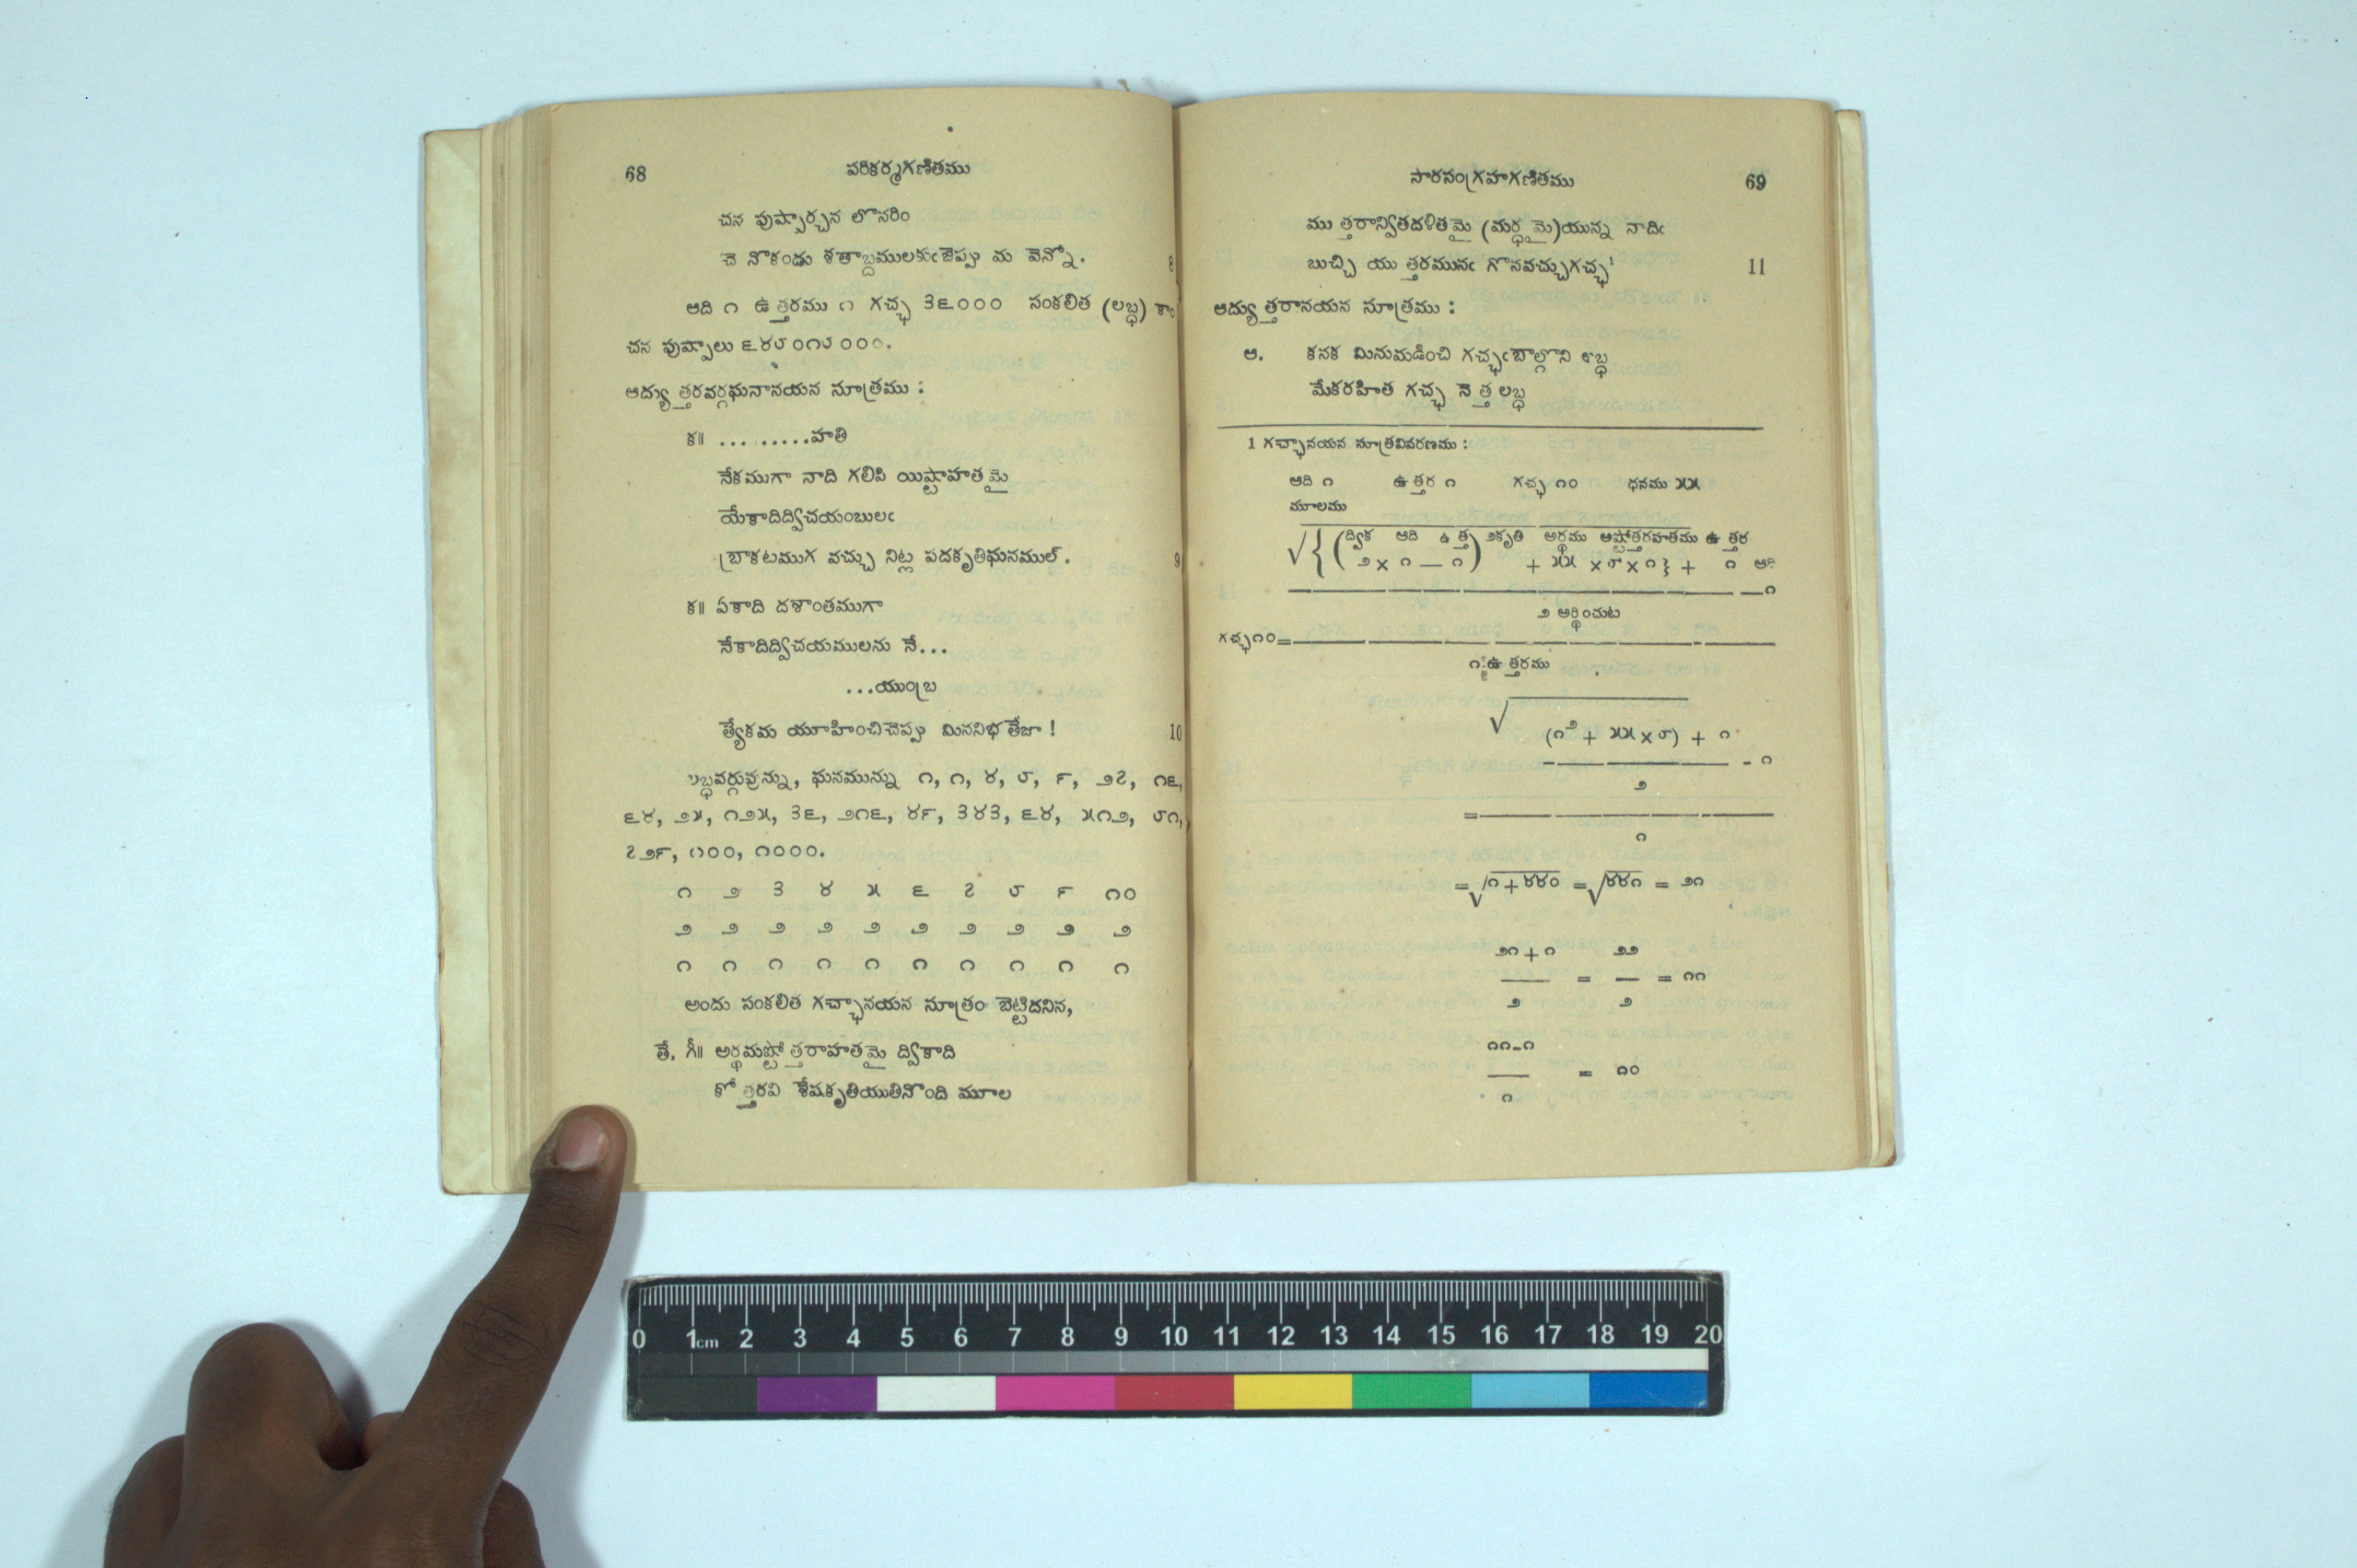 68 పరికర్మగణితము
చన పుష్పార్చన లొనరిం
చె నొకండు శతాబ్దములకుఁజెప్పు మ వెన్నో. 8
ఆది ౧ ఉత్తరము ౧ గచ్ఛ ౩౬౦౦౦ సంకలిత (లబ్ధ) కాం
చన పుష్పాలు ౬౪౮౦౧౮౦౦౦.
ఆద్యుత్తరవర్గఘనానయన సూత్రము :
క॥ ... ......హతి
నేకముగా నాది గలిపి యిష్టాహతమై
యేకాదిద్విచయంబులఁ
బ్రాకటముగ వచ్చు నిట్ల పదకృతిఘనముల్. 9
క॥ ఏకాది దశాంతముగా
నేకాదిద్విచయములను నే...
...యుంబ్ర
త్యేకమ యూహించిచెప్పు మిననిభతేజా ! 10
లబ్ధవర్గువున్ను, ఘనమున్ను ౧, ౧, ౪, ౮, ౯, ౨౭, ౧౬,
౬౪, ౨౫, ౧౨౫, ౩౬, ౨౧౬, ౪౯, ౩౪౩, ౬౪, ౫౧౨, ౮౧,
౭౨౯, ౧౦౦, ౧౦౦౦.
౧ ౨ ౩ ౪ ౫ ౬ ౭ ౮ ౯ ౧౦
౨ ౨ ౨ ౨ ౨ ౨ ౨ ౨ ౨ ౨
౧ ౧ ౧ ౧ ౧ ౧ ౧ ౧ ౧ ౧
అందు సంకలిత గచ్ఛానయన సూత్రం బెట్టిదనిన,
తే. గీ॥ అర్థమష్టోత్తరాహతమై ద్వికాది
కోత్తరవి శేషకృతియుతినొంది మూల
సారసంగ్రహగణితము 69
ముత్తరాన్వితదళితమై (మర్ధమై)యున్న నాదిఁ
బుచ్చి యుత్తరమునఁ గొనవచ్చుగచ్ఛ¹ 11
ఆద్యుత్తరానయన సూత్రము :
ఆ. కనక మినుమడించి గచ్ఛఁబాల్గొని లబ్ధ
మేకరహిత గచ్ఛ నెత్త లబ్ధ
1 గచ్ఛానయన సూత్రవివరణము :
ఆది ౧ ఉత్తర ౧ గచ్ఛ ౧౦ ధనము ౫౫
మూలము
√{(ద్విక ఆది ఉత్త)౨కృతి అర్థము అష్టోత్తరహతము ఉత్తర
౨ × ౧ — ౧) + ౫౫ × ౮ × ౧} + ౧ ఆది
—౧
౨ అర్ధించుట
గచ్ఛ౧౦=
౧ ఉత్తరము
√
(౧² + ౫౫ × ౮) + ౧
- ౧
౨
=
౧
=√౧+౪౪౦ =√౪౪౧ = ౨౧
౨౧ + ౧ ౨౨
= = ౧౧
౨ ౨
౧౧-౧
= ౧౦
౧
0 1cm 2 3 4 5 6 7 8 9 10 11 12 13 14 15 16 17 18 19 20